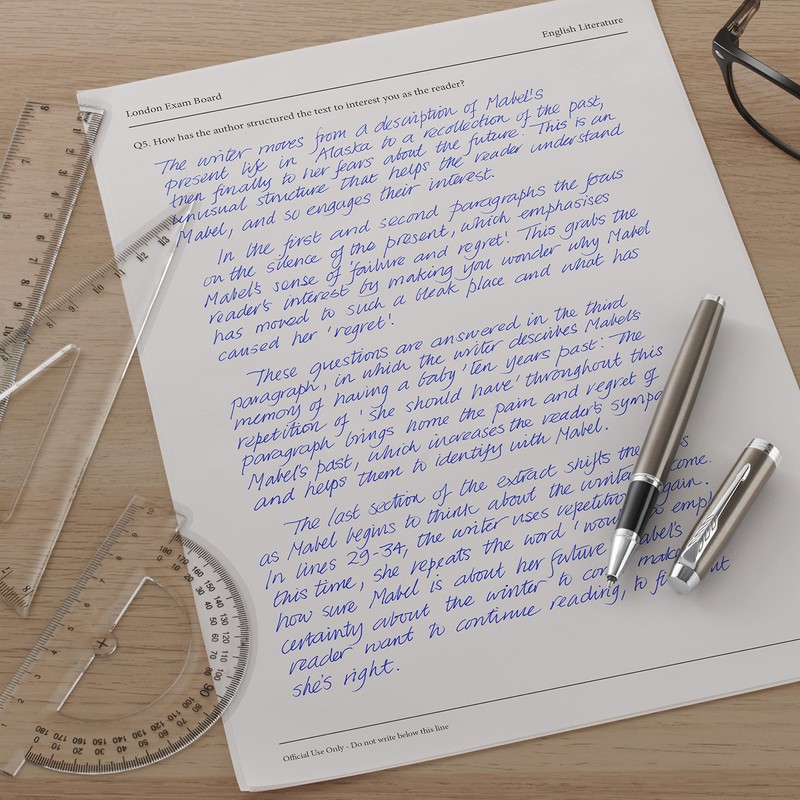 English Literature
London Exam Board
Q5. How has the author structured the text to interest you as the reader?
The writer moves from a description of Mabel's
present life in Alaska to a recollection of the past,
then finally to her fears about the future. This is an
unusual structure that helps the reader understand
Mabel, and so engages their interest.
In the first and second paragraphs the focus
on the silence of the present, which emphasises
Mabel's sense of 'failure and regret'. This grabs the
reader's interest by making you wonder why Mabel
has moved to such a bleak place and what has
caused her 'regret'.
These questions are answered in the third
paragraph, in which the writer describes Mabel's
memory of having a baby 'ten years past'. The
repetition of 'She should have' throughout this
paragraph brings home the pain and regret of
Mabel's past, which increases the reader's
and helps them to identify with Mabel.
The last section of the extract shifts
as Mabel begins to think about the
In lines 29-34, the writer uses
this time, she repeats the word
how sure Mabel is about her future
certainty about the winter to
reader want to continue reading, to
she's right.
Official Use Only - Do not write below this line
13 12 11 10
180 170 160 150 140 130 120 110 100 90 80 70 60 50 40 30 20 10 0